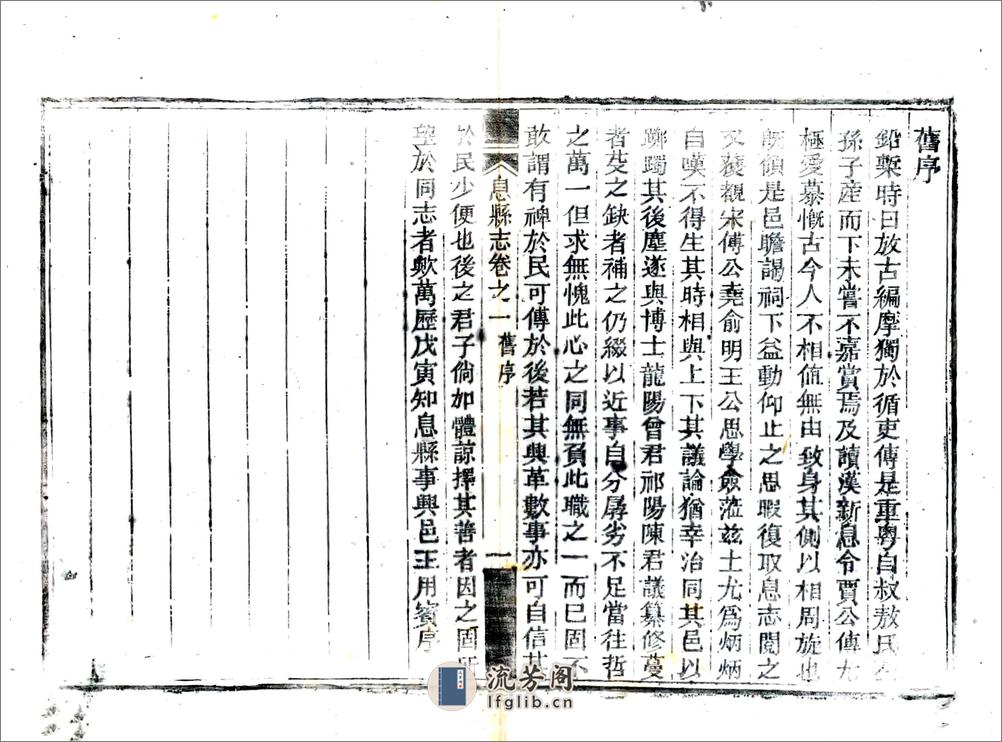 舊序
鉛槧時日放古編摩獨於循吏傳是重粵自叔敖氏公
孫子產而下未嘗不嘉賞焉及讀漢新息令賈公傳尤
極愛慕慨古今人不相值無由致身其側以相周旋也
既領是邑瞻謁祠下益動仰止之思暇復取息志閱之
又獲觀宋傅公堯俞明王公思學僉蒞茲土尤爲炳炳
自嘆不得生其時相與上下其議論猶幸治同其邑以
躑躅其後塵遂與博士龍陽曾君祁陽陳君議纂修蔓
者芟之缺者補之仍綴以近事自分孱劣不足當往哲
之萬一但求無愧此心之同無負此職之一而已固不
敢謂有裨於民可傳於後若其興革數事亦可自信其
息縣志卷之一 舊序 一
於民少便也後之君子倘加體諒擇其善者因之固所
望於同志者歟萬歷戊寅知息縣事興邑王用賓序
流芳阁
lfglib.cn